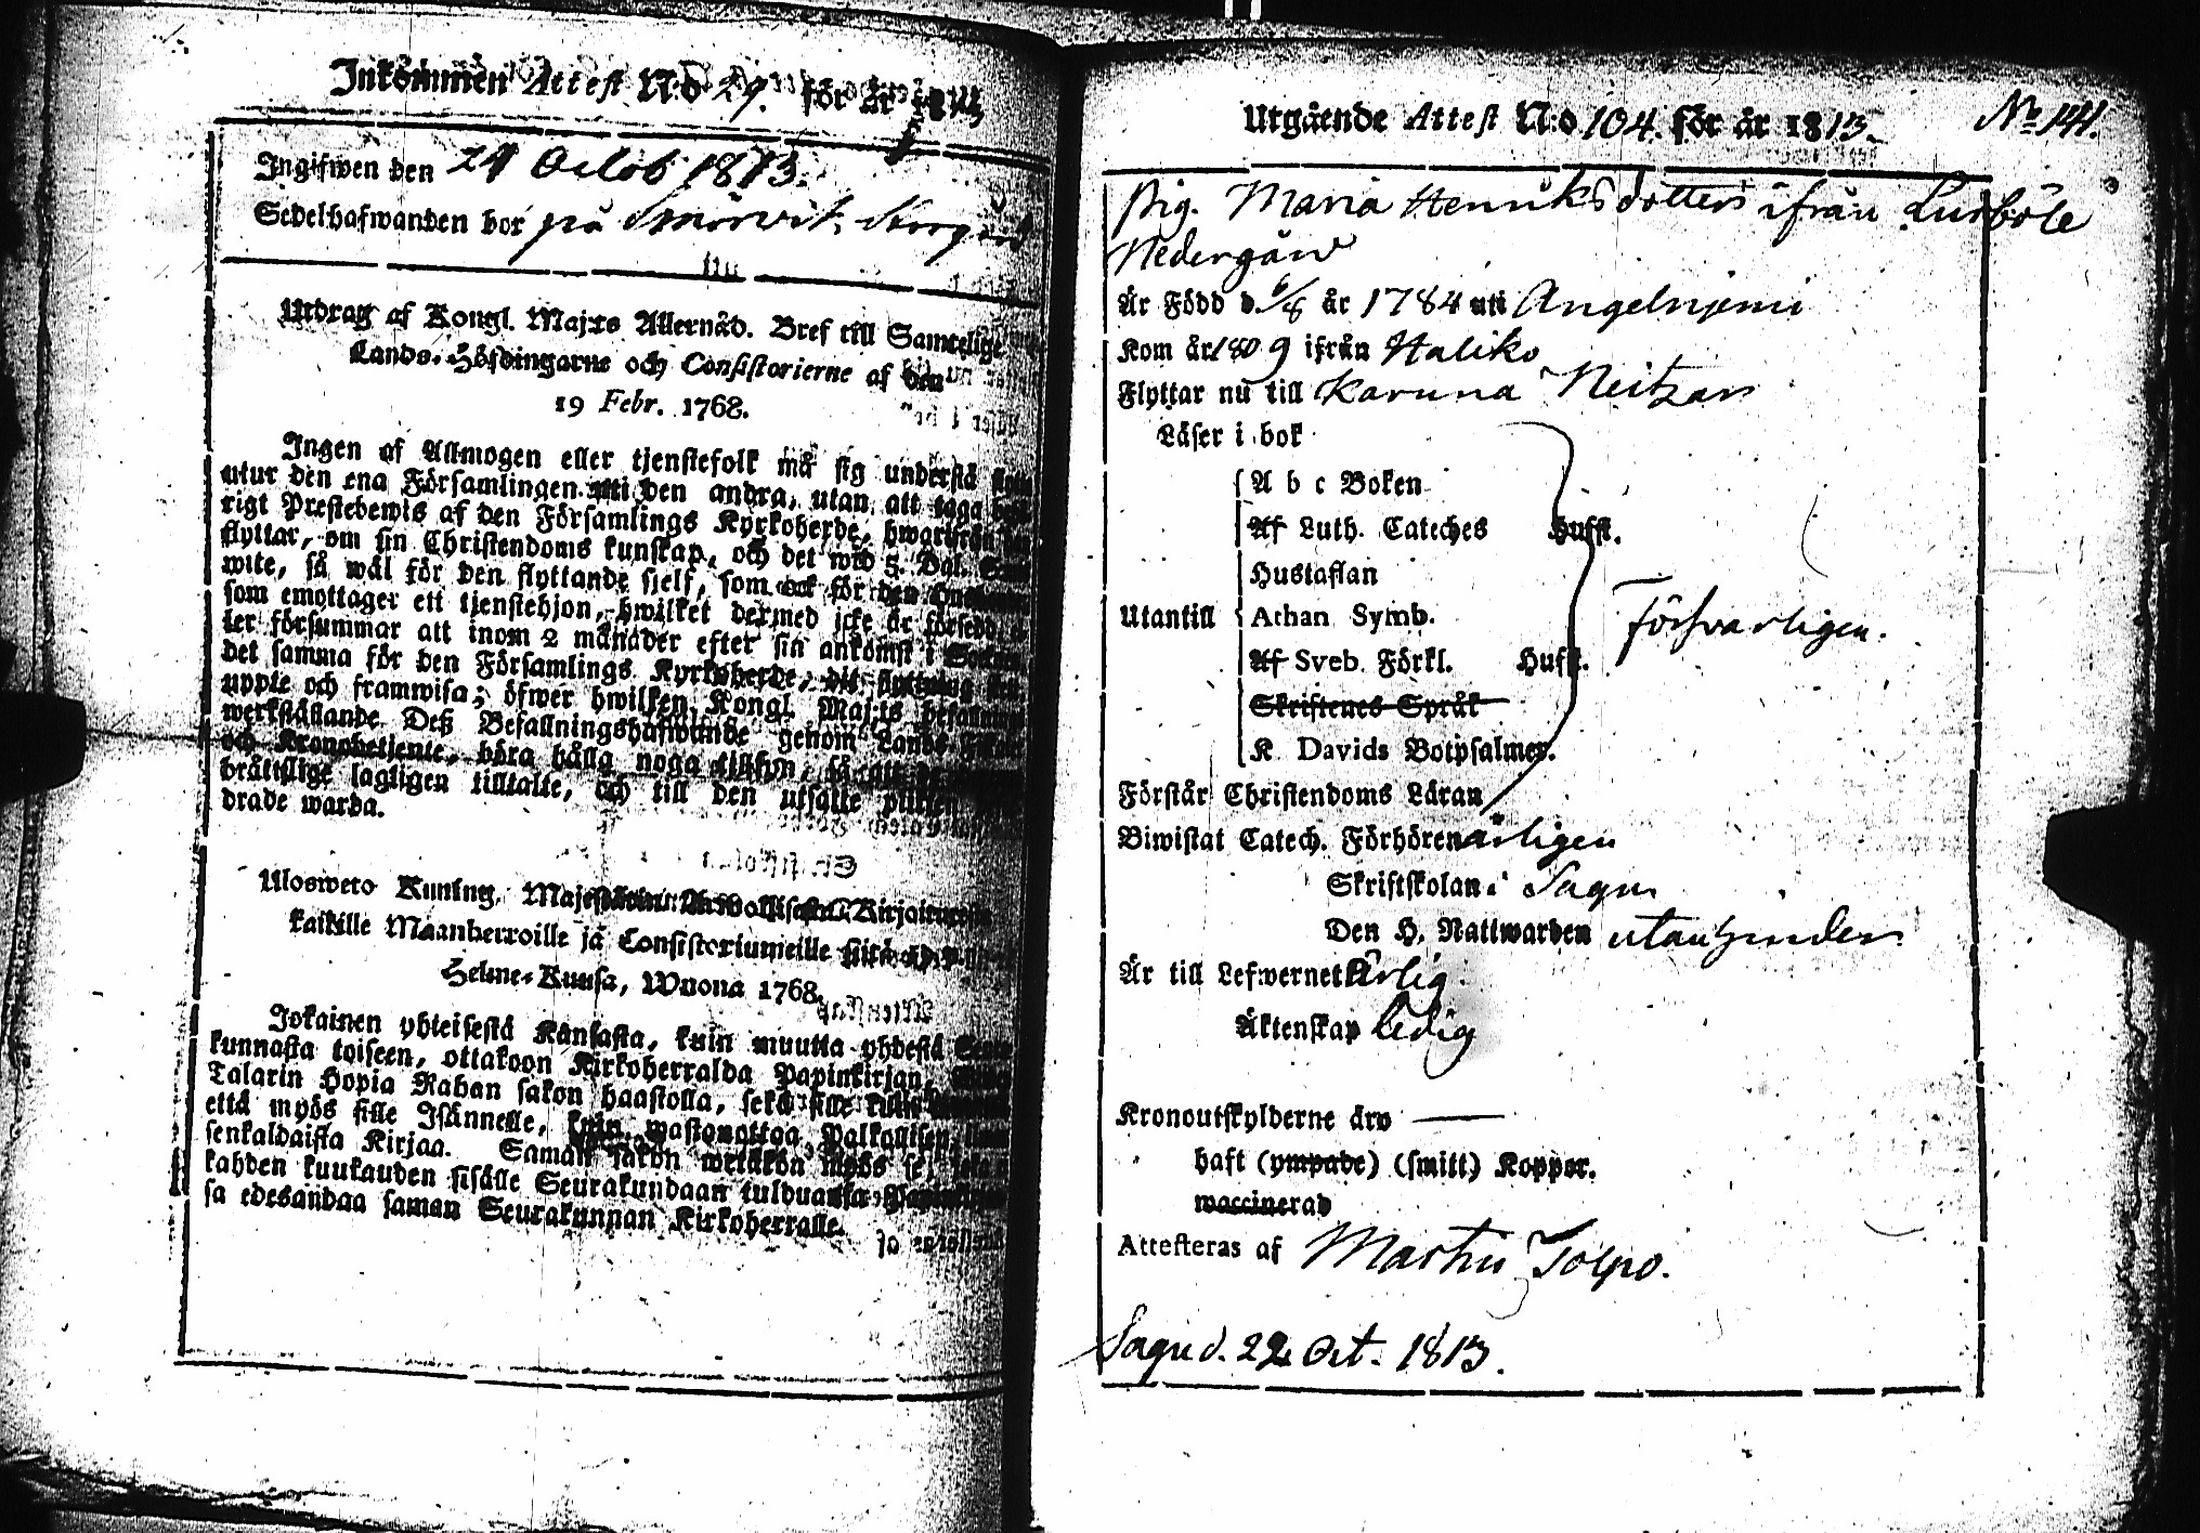 Inkommen Attest N:o 29. för år 1813
Ingifwen den 21 Octob 1813.
Sedelhafwanden bor på
Utdrag af Kongl. Maj:ts Allernåd. Bref till Samtelige
Lands-Höfdingarne och Consistorierne af den
19 Febr. 1768.
Ingen af Allmogen eller tjenstefolk må sig understå
utur den ena Församlingen uti den andra, utan att taga
rigt Prestebewis af den Församlings Kyrkoherde, hwarifrån
flyttar, om sin Christendoms kunskap, och det wid 5. Dal.
wite, så wäl för den flyttande sjelf, som ock för den
som emottager ett tjenstehjon, hwilket dermed icke är försedd,
ler försummar att inom 2 månader efter sin ankomst i
det samma för den Församlings Kyrkoherde, dit
uppte och framwisa; öfwer hwilken Kongl. Maj:ts
werkställande Deß Befallningshafwande genom Lands
och Kronobetjente, böra hålla noga tillsyn, så att
brättslige lagligen tilltalte, och till den utsatte plikten
drade warda.
Ulosweto Kuning. Majestätin Kirjoituresta
kaikille Maanherroille ja Consistoriumeille
Helme-Kuusa, Wuona 1768.
Jokainen yhteisestä Kansasta, kuin muutta yhdestä
kunnasta toiseen, ottakoon Kirkoherralda Papinkirjan,
Talarin Hopia Rahan sakon haastolla, sekä sille kuin
että myös sille Isännelle, kuin wastanottaa Palkollisen,
senkaldaista Kirjaa. Saman sakon wetäkön myös se,
kahden kuukauden sisälle Seurakundaan tulduansa
sa edesandaa saman Seurakunnan Kirkoherralle.
Utgående Attest N:o 104. för år 1813. No 141.
Pig. Maria Henriksdotter ifrån Lurböle
Nedergård
Är Född d. 6/8 år 1784 uti Angelniemi
Kom år 1809 ifrån Haliko
Flyttar nu till Karuna Neitzar
Läser i bok
A b c Boken
Af Luth. Cateches Hufst.
Hustaflan
Utantill Athan Symb.
Af Sveb. Förkl. Hufst. Försvarligen.
Skriftenes Språk
K Davids Botpsalmer.
Förstår Christendoms Läran
Biwistat Catech. Förhören årligen
Skriftskolan i Sagu
Den H. Nattwarden utan hinder
Är till Lefwernet Ärlig
Äktenskap ledig
Kronoutskylderne äro
haft (ympade) (smitt) Koppor.
waccinerad
Attesteras af Martin Tolpo.
Sagu d. 22 Oct. 1813.